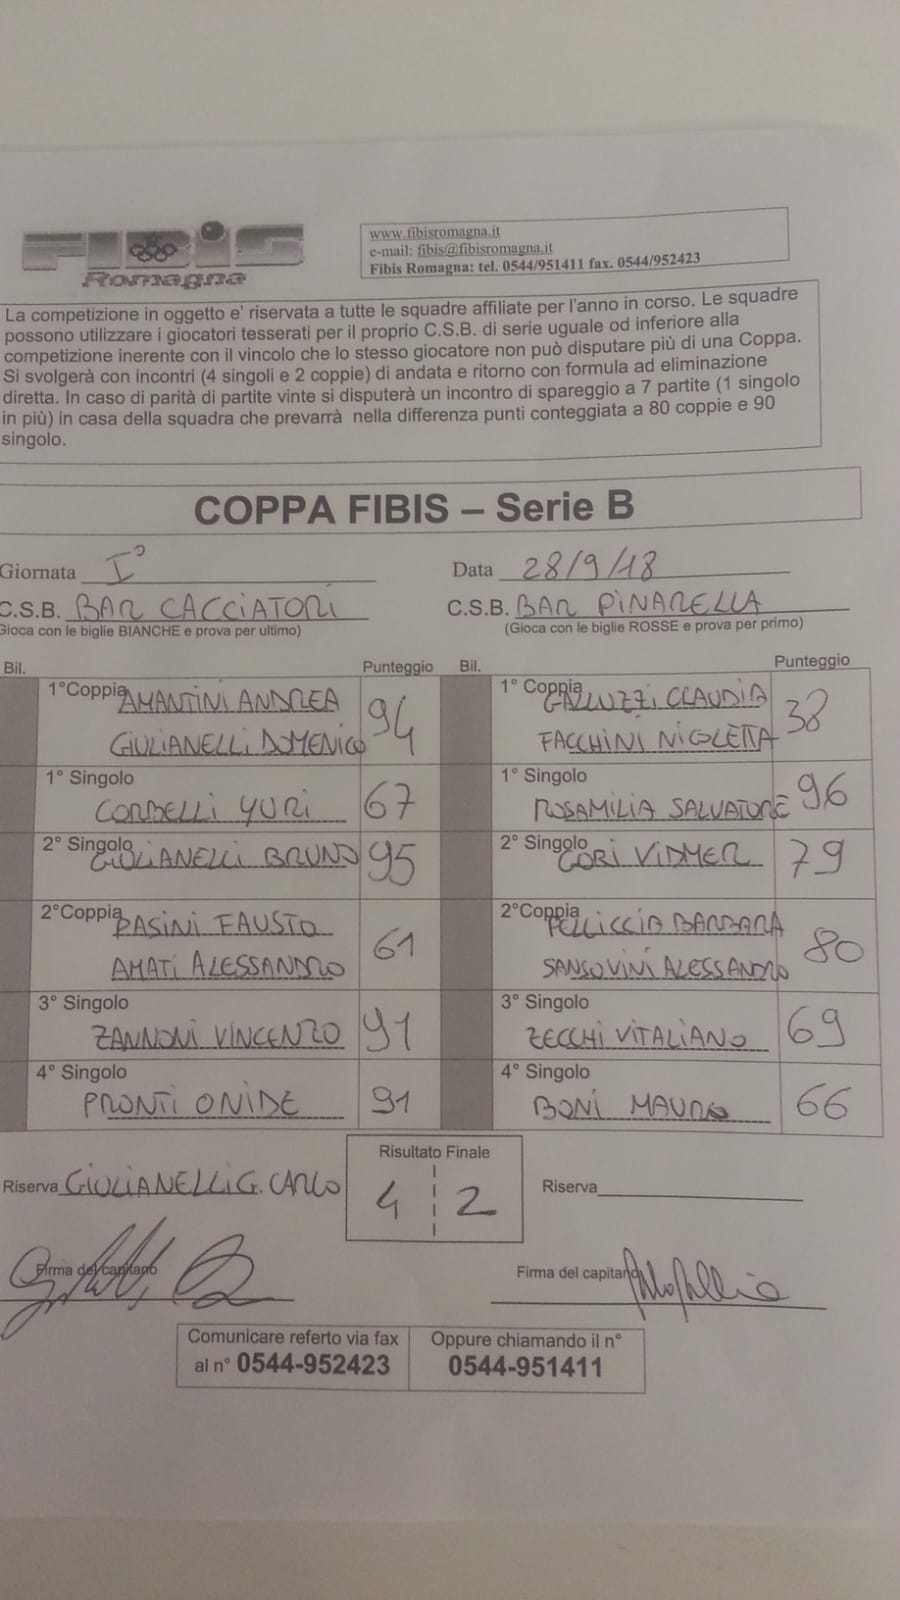 FIBiS
Romagna
www.fibisromagna.it
e-mail: fibis@fibisromagna.it
Fibis Romagna: tel. 0544/951411 fax. 0544/952423
La competizione in oggetto e' riservata a tutte le squadre affiliate per l'anno in corso. Le squadre
possono utilizzare i giocatori tesserati per il proprio C.S.B. di serie uguale od inferiore alla
competizione inerente con il vincolo che lo stesso giocatore non può disputare più di una Coppa.
Si svolgerà con incontri (4 singoli e 2 coppie) di andata e ritorno con formula ad eliminazione
diretta. In caso di parità di partite vinte si disputerà un incontro di spareggio a 7 partite (1 singolo
in più) in casa della squadra che prevarrà nella differenza punti conteggiata a 80 coppie e 90
singolo.
COPPA FIBIS – Serie B
Giornata I° Data 28/9/18
C.S.B. BAR CACCIATORI C.S.B. BAR PINARELLA
(Gioca con le biglie BIANCHE e prova per ultimo) (Gioca con le biglie ROSSE e prova per primo)
Bil. Punteggio Bil. Punteggio
1°Coppia AMANTINI ANDREA 94 1° Coppia GALLUZZI CLAUDIA 38
GIULIANELLI DOMENICO FACCHINI NICOLETTA
1° Singolo 1° Singolo
CORBELLI YURI 67 ROSAMILIA SALVATORE 96
2° Singolo GIULIANELLI BRUNO 95 2° Singolo GORI VIDMER 79
2°Coppia PASINI FAUSTO 61 2°Coppia PELLICCIA BARBARA 80
AMATI ALESSANDRO SANSOVINI ALESSANDRO
3° Singolo 3° Singolo
ZANNONI VINCENZO 91 ZECCHI VITALIANO 69
4° Singolo 4° Singolo
PRONTI ONIDE 91 BONI MAURO 66
Risultato Finale
Riserva GIULIANELLI G. CARLO 4 2 Riserva
Firma del capitano Firma del capitano
Comunicare referto via fax Oppure chiamando il n°
al n° 0544-952423 0544-951411